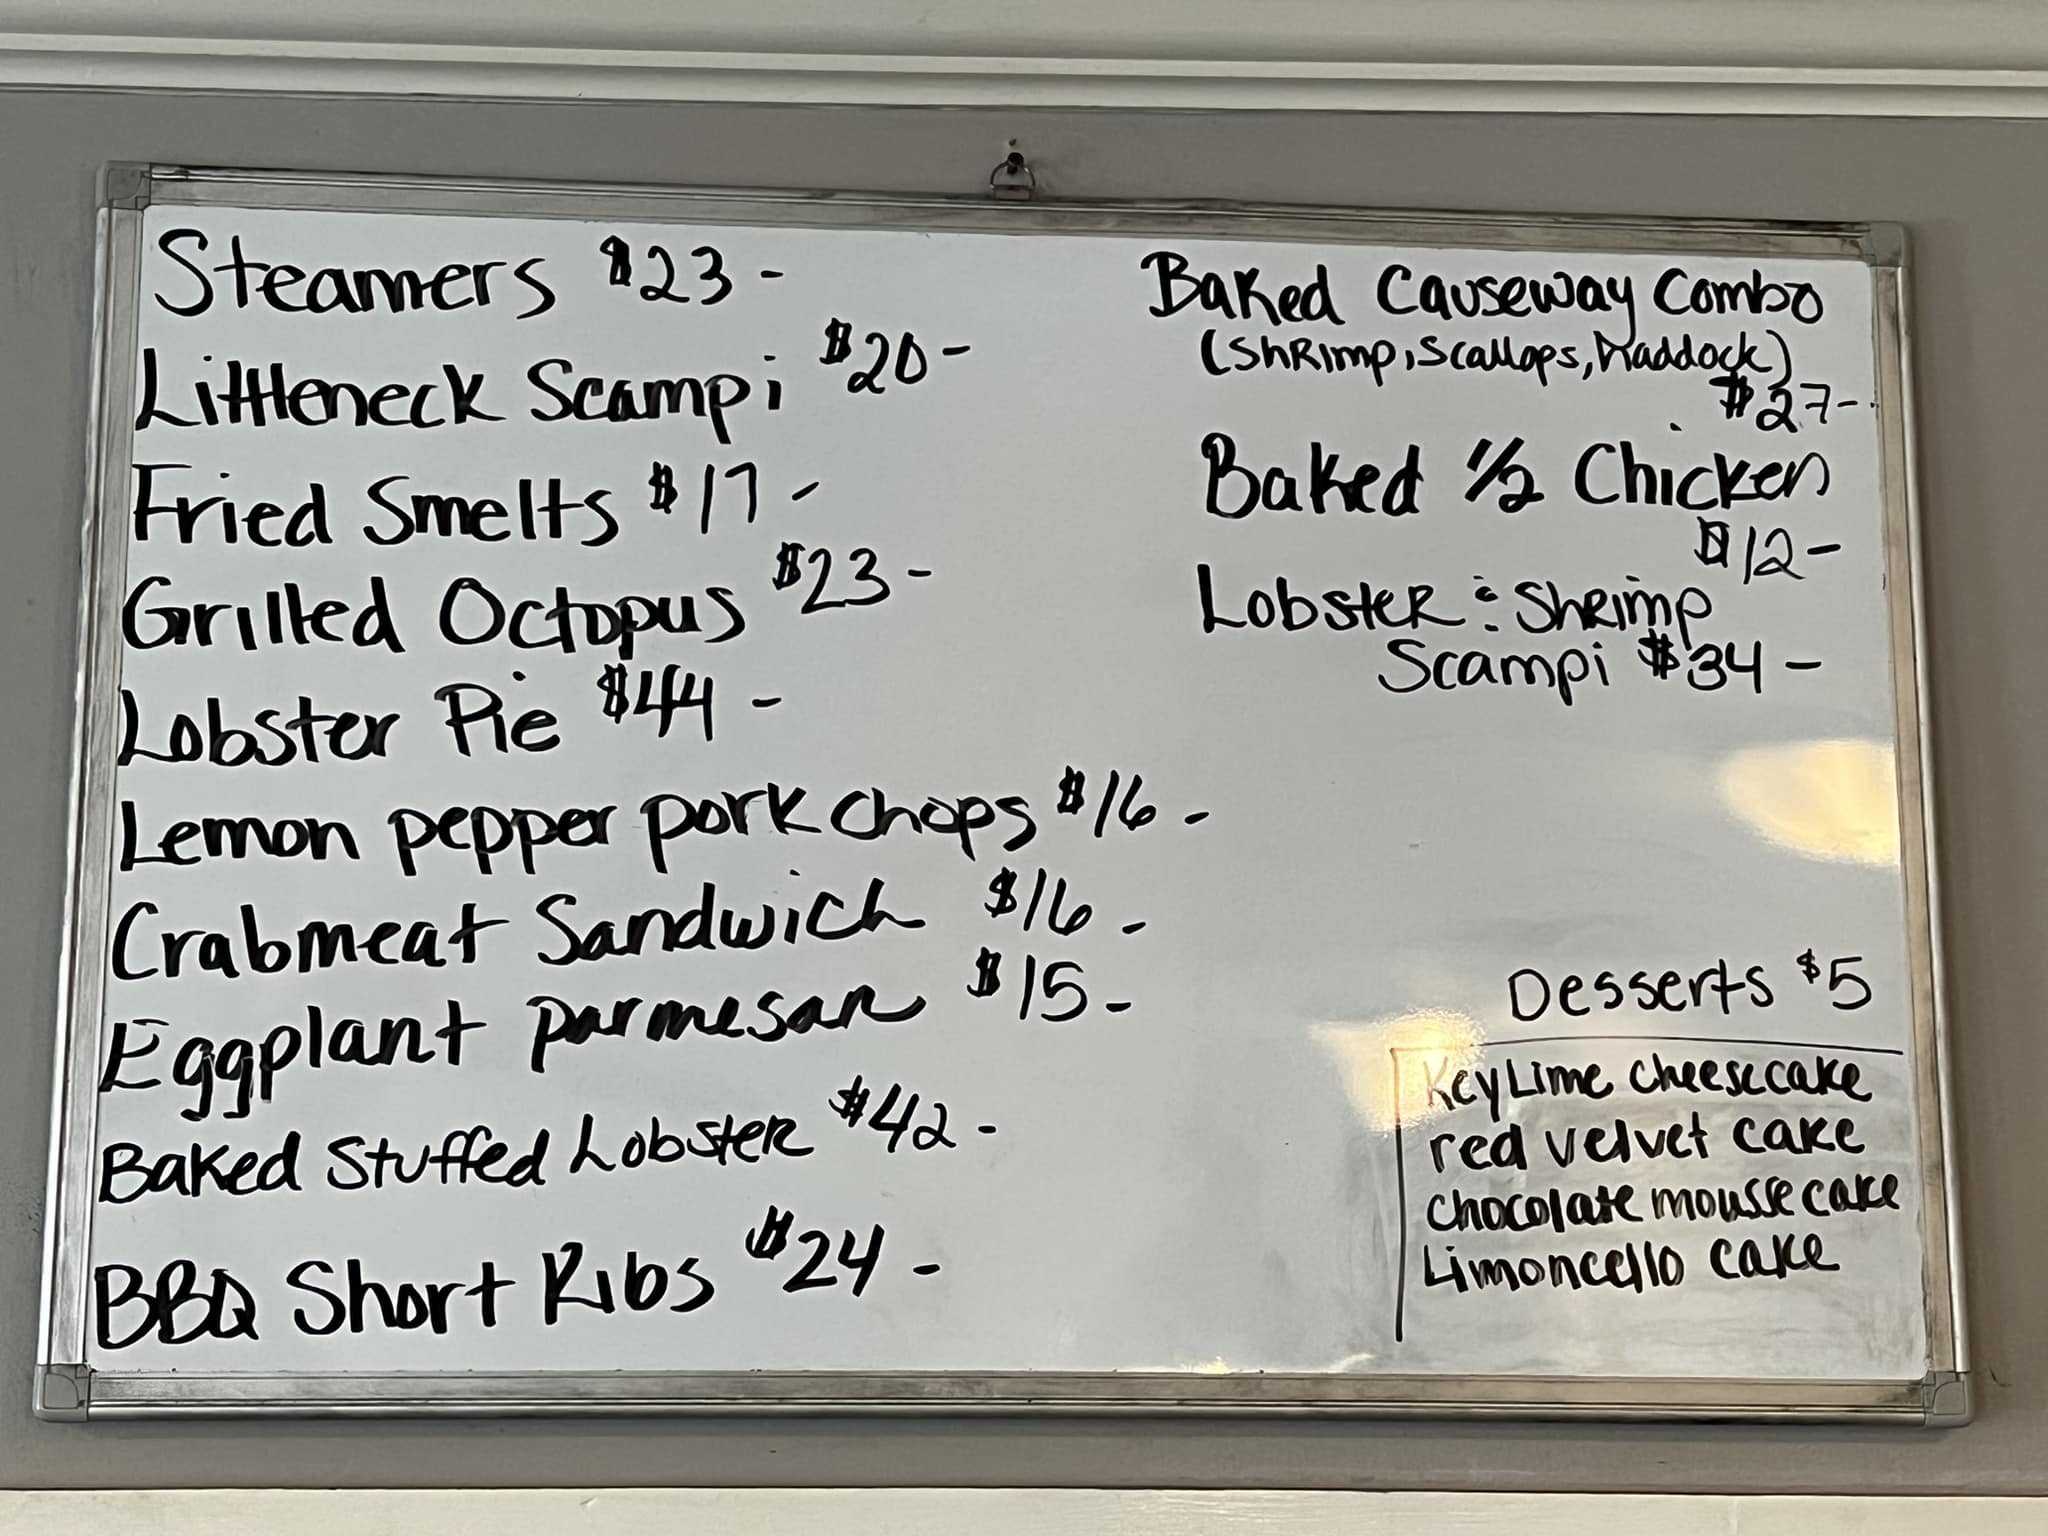 Steamers $23-
Littleneck Scampi $20-
Fried Smelts $17-
Grilled Octopus $23-
Lobster Pie $44-
Lemon pepper pork chops $16-
Crabmeat Sandwich $16-
Eggplant parmesan $15-
Baked Stuffed Lobster $42-
BBQ Short Ribs $24-
Baked Causeway Combo
(Shrimp, Scallops, Haddock)
$27-
Baked 1/2 Chicken
$12-
Lobster & Shrimp
Scampi $34-
Desserts $5
Key Lime Cheesecake
red velvet cake
chocolate mousse cake
Limoncello cake